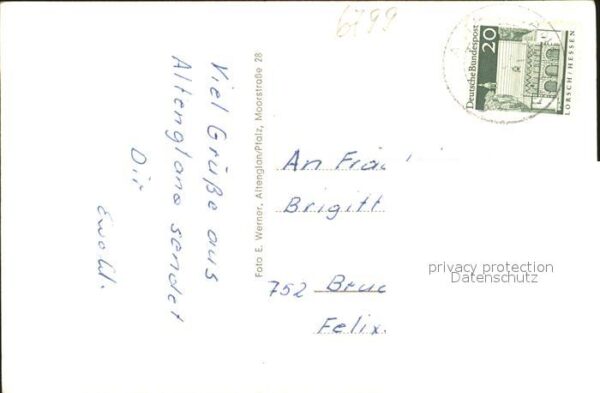 6799
Viel Grüße aus
Altenglans sendet
Dir
Ewald.
Foto E. Werner, Altenglan/Pfalz, Moorstraße 28
Deutsche Bundespost
20
LORSCH/HESSEN
An Frä
Brigitt
752 Bruc
Felix.
privacy protection
Datenschutz